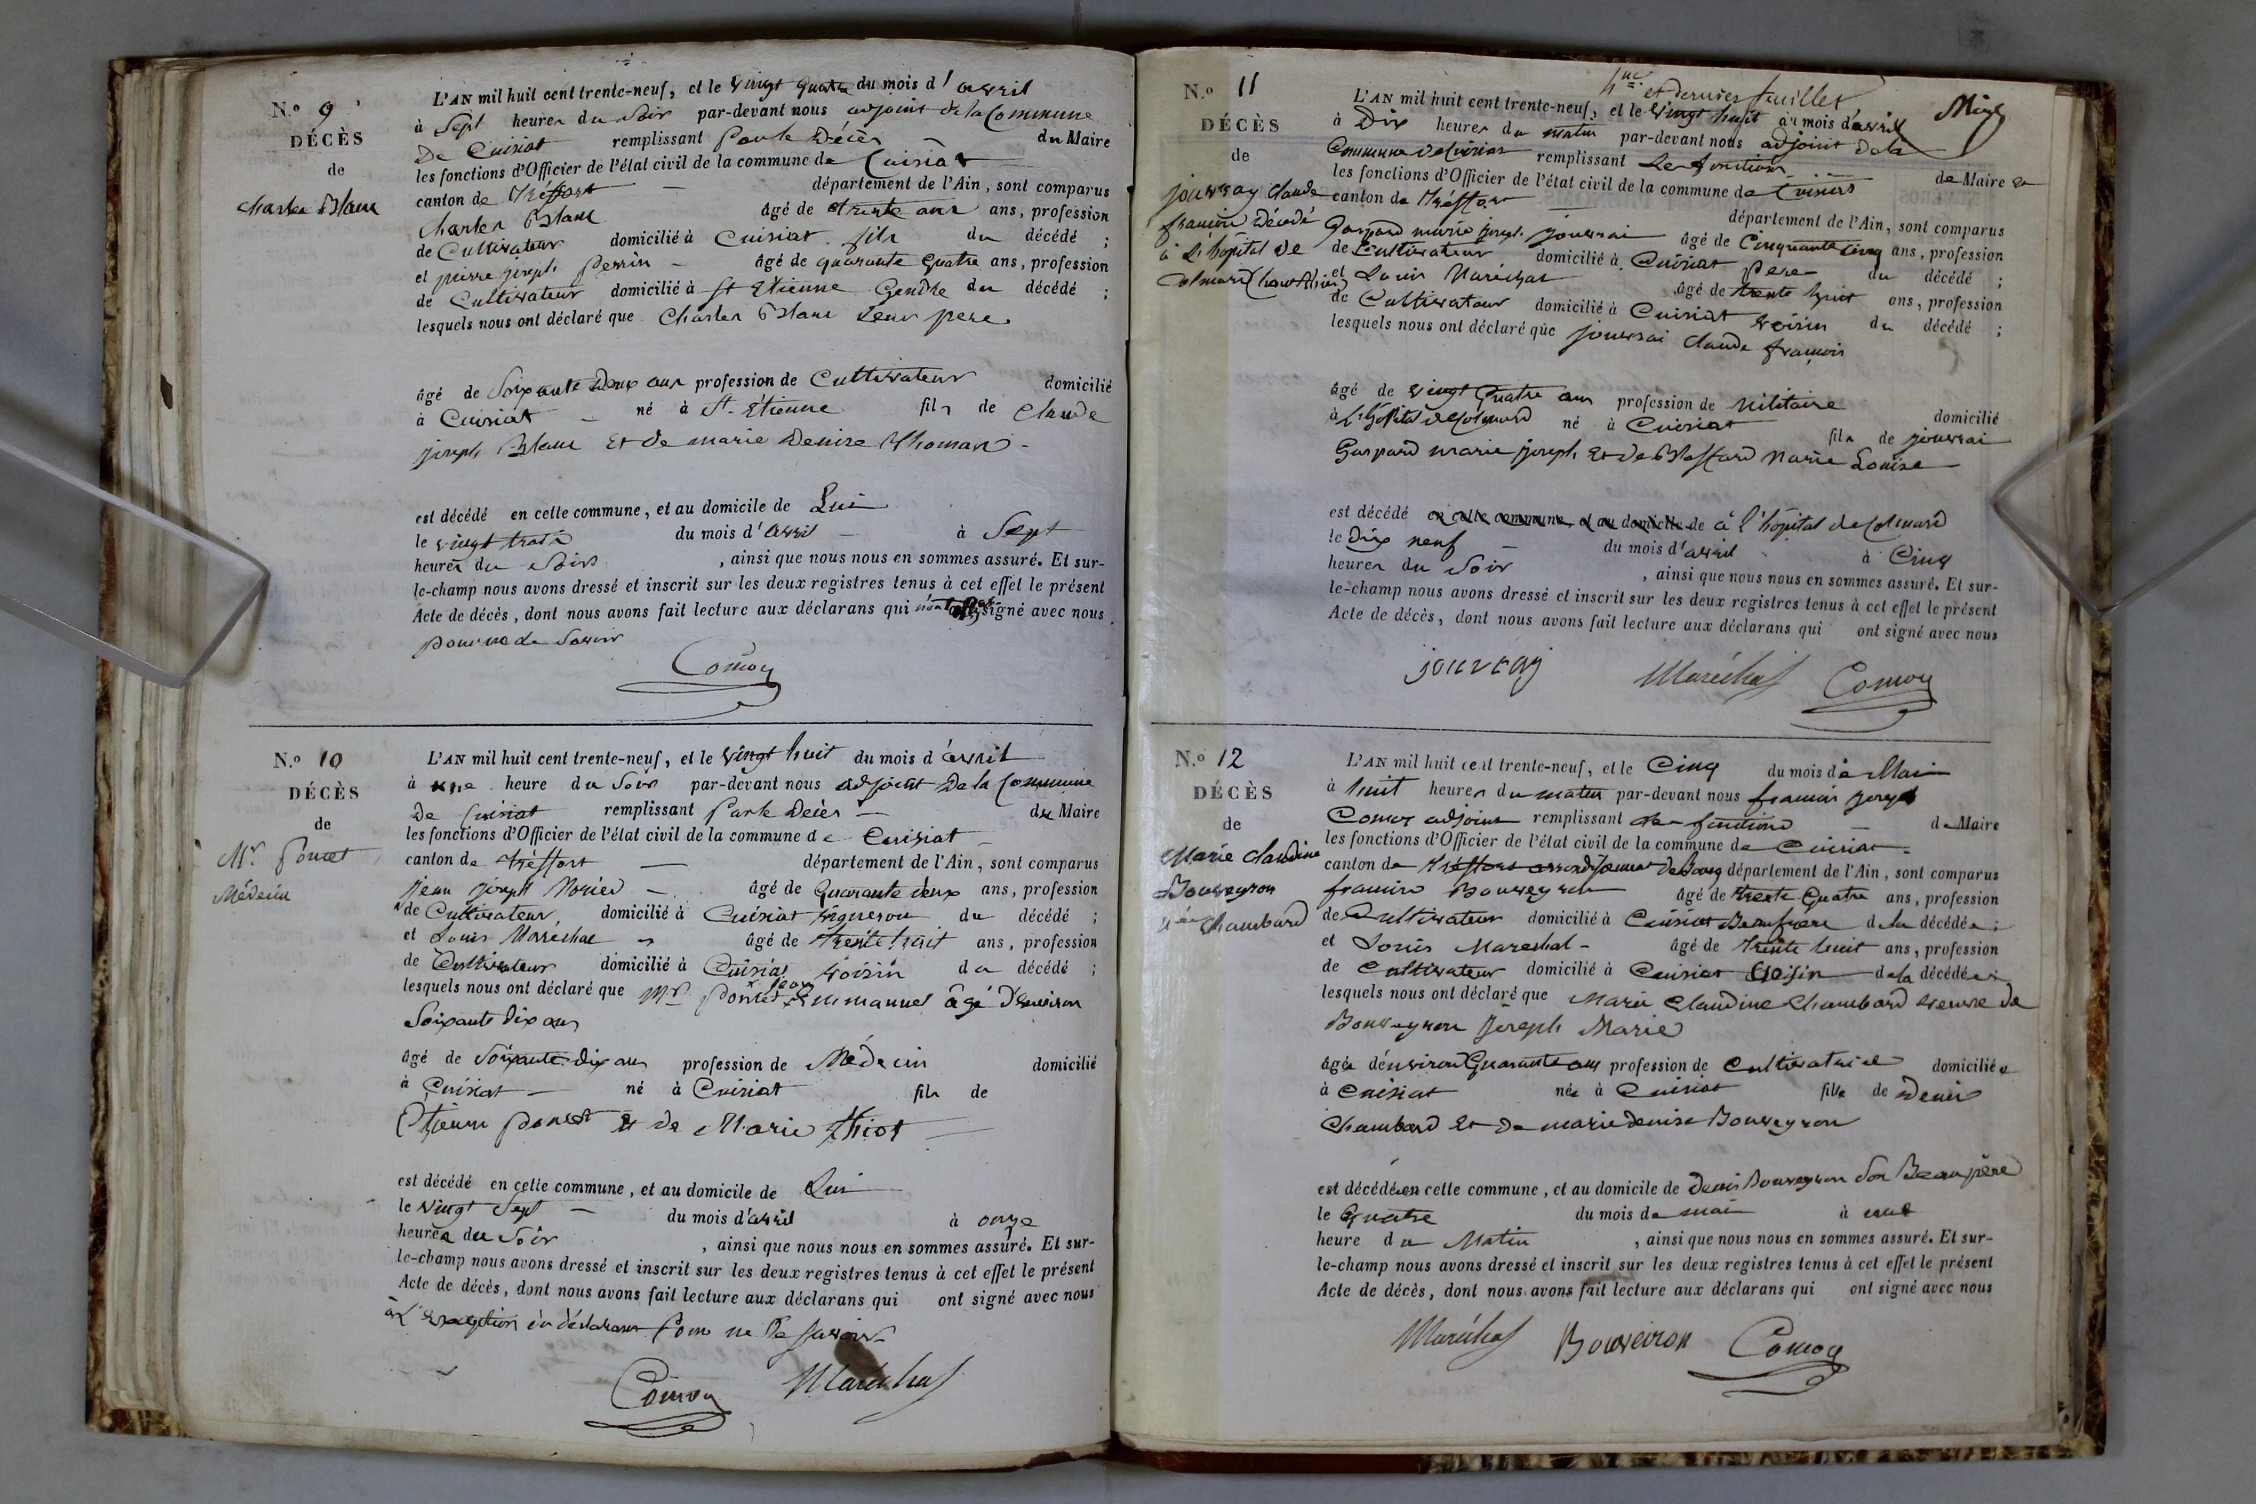 N.o 9
DÉCÈS
de
Charles Blanc
L'AN mil huit cent trente-neuf, et le vingt quatre du mois d'avril
à Sept heures du Soir par-devant nous adjoint de la Commune
De Cuisiat remplissant Par le Décès du Maire
les fonctions d'Officier de l'état civil de la commune de Cuisiat
canton de Tréffort département de l'Ain, sont comparus
Charles Blanc âgé de trente ans ans, profession
de Cultivateur domicilié à Cuisiat fils du décédé ;
et pierre joseph Perrin âgé de quarante quatre ans, profession
de Cultivateur domicilié à St Etienne Gendre du décédé ;
lesquels nous ont déclaré que Charles Blanc Leur pere
âgé de Soixante Deux ans profession de Cultivateur domicilié
à Cuisiat né à St. Étienne fils de Claude
joseph Blanc Et de marie Denise Thoman
est décédé en cette commune, et au domicile de Lui
le vingt trois du mois d'avril à Sept
heures du Soir, ainsi que nous nous en sommes assuré. Et sur-
le-champ nous avons dressé et inscrit sur les deux registres tenus à cet effet le présent
Acte de décès, dont nous avons fait lecture aux déclarans qui n'ont pas signé avec nous
pour ne le Savoir
Comoy
N.o 10
DÉCÈS
de
Mr. Poncet
Médecin
L'AN mil huit cent trente-neuf, et le vingt huit du mois d'avril
à une heure du Soir par-devant nous adjoint De la Commune
De Cuisiat remplissant Par le Décès du Maire
les fonctions d'Officier de l'état civil de la commune de Cuisiat
canton de Treffort département de l'Ain, sont comparus
Jean joseph Morier âgé de Quarante deux ans, profession
de Cultivateur, domicilié à Cuisiat vigneron du décédé ;
et Louis Maréchal âgé de trente huit ans, profession
de Cultivateur domicilié à Cuisiat voisin du décédé ;
lesquels nous ont déclaré que Mr Poncet jean Emmanuel âgé d'environ
Soixante dix ans
âgé de Soixante dix ans profession de Médecin domicilié
à Cuisiat né à Cuisiat fils de
Etienne Poncet Et de Marie Thiot
est décédé en cette commune, et au domicile de Lui
le vingt Sept du mois d'avril à onze
heures du Soir, ainsi que nous nous en sommes assuré. Et sur-
le-champ nous avons dressé et inscrit sur les deux registres tenus à cet effet le présent
Acte de décès, dont nous avons fait lecture aux déclarans qui ont signé avec nous
à L'exception du déclarant Pour ne Le savoir
Comoy Maréchal
4me et dernier feuillet
N.o 11
DÉCÈS
de
jouvray Claude
francois Décédé
à L'hôpital de
Colmard
L'AN mil huit cent trente-neuf, et le vingt huit du mois d'avril
à Dix heures du matin par-devant nous adjoint De la
Commune de Cuisiat remplissant Les fonctions de Maire
les fonctions d'Officier de l'état civil de la commune de Cuisiat
canton de Tréffort département de l'Ain, sont comparus
Gaspard marie joseph jouvrai âgé de Cinquante Cinq ans, profession
de Cultivateur domicilié à Cuisiat pere du décédé ;
et Louis Maréchal âgé de trente huit ans, profession
de Cultivateur domicilié à Cuisiat voisin du décédé ;
lesquels nous ont déclaré que jouvrai Claude françois
âgé de vingt Quatre ans profession de Militaire domicilié
à L'hôpital de Colmard né à Cuisiat fils de jouvrai
Gaspard marie joseph Et de Blaffard Marie Louise
est décédé en cette commune, et au domicile de à l'hôpital de Colmard
le dix neuf du mois d'avril à Cinq
heures du Soir, ainsi que nous nous en sommes assuré. Et sur-
le-champ nous avons dressé et inscrit sur les deux registres tenus à cet effet le présent
Acte de décès, dont nous avons fait lecture aux déclarans qui ont signé avec nous
jouvray Maréchal Comoy
N.o 12
DÉCÈS
de
Marie Claudine
Bouveyron
née Chambard
L'AN mil huit cent trente-neuf, et le Cinq du mois de Mai
à huit heures du matin par-devant nous francois joseph
Comoy adjoint remplissant les fonctions de Maire
les fonctions d'Officier de l'état civil de la commune de Cuisiat
canton de Tréffort arrondissement De Bourg département de l'Ain, sont comparus
francois Bouveyron âgé de trente Quatre ans, profession
de Cultivateur domicilié à Cuisiat Beaufrere de la décédée ;
et Louis Marechal âgé de trente huit ans, profession
de Cultivateur domicilié à Cuisiat Voisin de la décédée ;
lesquels nous ont déclaré que Marie Claudine Chambard veuve de
Bouveyron Joseph Marie
âgée d'environ Quarante ans profession de Cultivatrice domiciliée
à Cuisiat née à Cuisiat fille de Denis
Chambard Et de marie denise Bouveyron
est décédée en cette commune, et au domicile de Denis Bouveyron Son Beau père
le Quatre du mois de mai à une
heure du Matin, ainsi que nous nous en sommes assuré. Et sur-
le-champ nous avons dressé et inscrit sur les deux registres tenus à cet effet le présent
Acte de décès, dont nous avons fait lecture aux déclarans qui ont signé avec nous
Maréchal Bouveiron Comoy